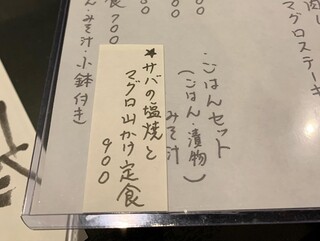 肉
マグロステーキ
00
・ごはんセット
(ごはん・漬物
みそ汁)
★サバの塩焼と
マグロ山かけ定食
900
食700
ん・みそ汁・小鉢付き)